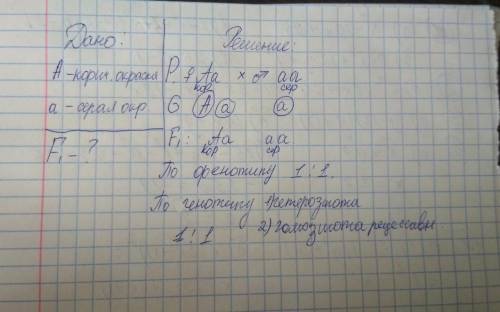 Дано:
А - корич. окраска
а - серая окр.
F₁ - ?
Решение:
P ♀ Аа × ♂ аа
кор сер
G А а а
F₁: Аа аа
кор сер
По фенотипу 1:1.
По генотипу 1) гетерозигота
1:1 2) гомозигота рецессивн